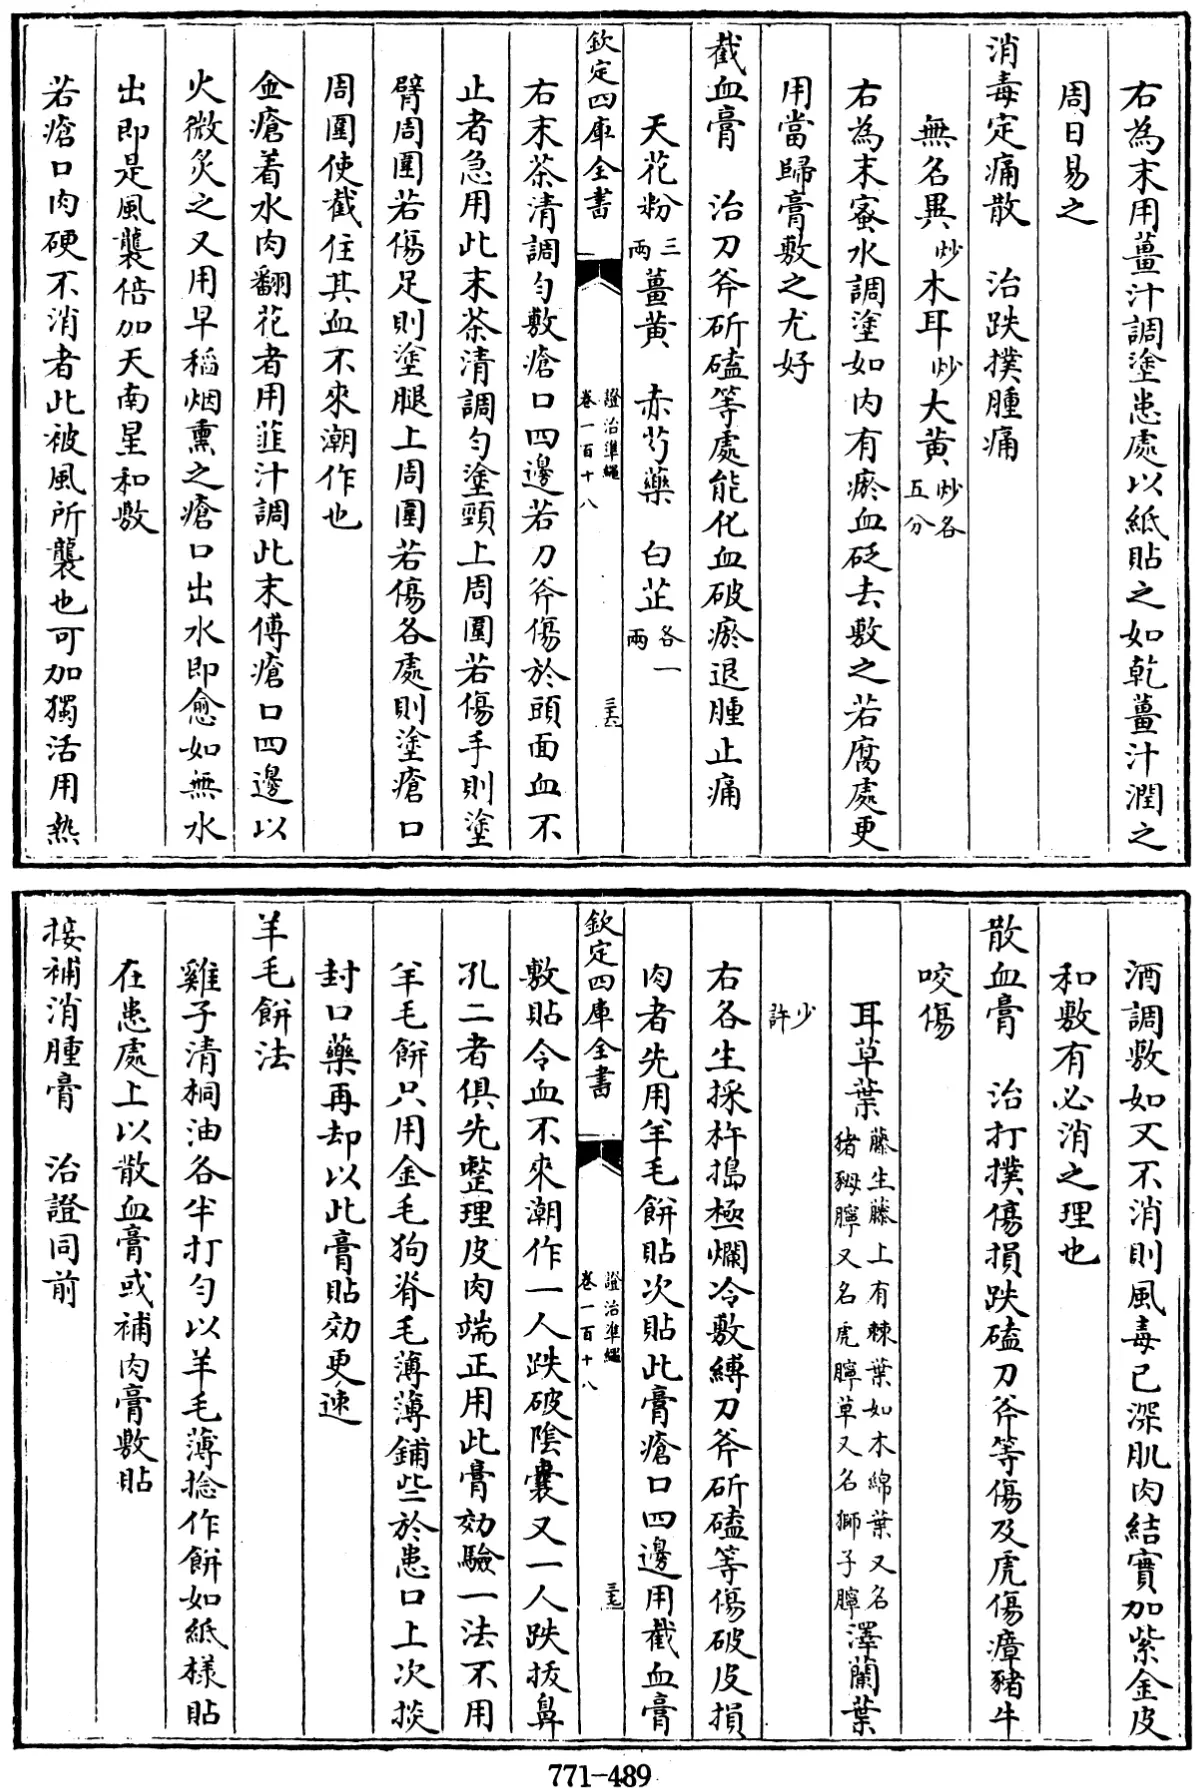 右為末用薑汁調塗患處以紙貼之如乾薑汁潤之
周日易之
消毒定痛散　治跌撲腫痛
無名異炒木耳炒大黄炒各五分
右為末蜜水調塗如内有瘀血砭去敷之若腐處更
用當歸膏敷之尤好
截血膏　治刀斧斫磕等處能化血破瘀退腫止痛
天花粉三兩薑黄　赤芍藥　白芷各一兩
欽定四庫全書　證治準繩卷一百十八　三十六
右末茶清調勻敷瘡口四邊若刀斧傷於頭面血不
止者急用此末茶清調勻塗頸上周圍若傷手則塗
臂周圍若傷足則塗腿上周圍若傷各處則塗瘡口
周圍使截住其血不來潮作也
金瘡着水肉翻花者用韮汁調此末傅瘡口四邊以
火微炙之又用早稻烟熏之瘡口出水即愈如無水
出即是風襲倍加天南星和敷
若瘡口肉硬不消者此被風所襲也可加獨活用熱
酒調敷如又不消則風毒已深肌肉結實加紫金皮
和敷有必消之理也
散血膏　治打撲傷損跌磕刀斧等傷及虎傷瘴豬牛
咬傷
耳草葉藤生藤上有棘葉如木綿葉又名豬姆聹又名虎聹草又名獅子聹澤蘭葉
少許
右各生採杵搗極爛冷敷縛刀斧斫磕等傷破皮損
肉者先用羊毛餅貼次貼此膏瘡口四邊用截血膏
欽定四庫全書　證治準繩卷一百十八　三十七
敷貼令血不來潮作一人跌破陰囊又一人跌拔鼻
孔二者俱先整理皮肉端正用此膏効驗一法不用
羊毛餅只用金毛狗脊毛薄薄鋪些於患口上次掞
封口藥再却以此膏貼効更速
羊毛餅法
雞子清桐油各半打勻以羊毛薄捻作餅如紙様貼
在患處上以散血膏或補肉膏敷貼
接補消腫膏　治證同前
771-489